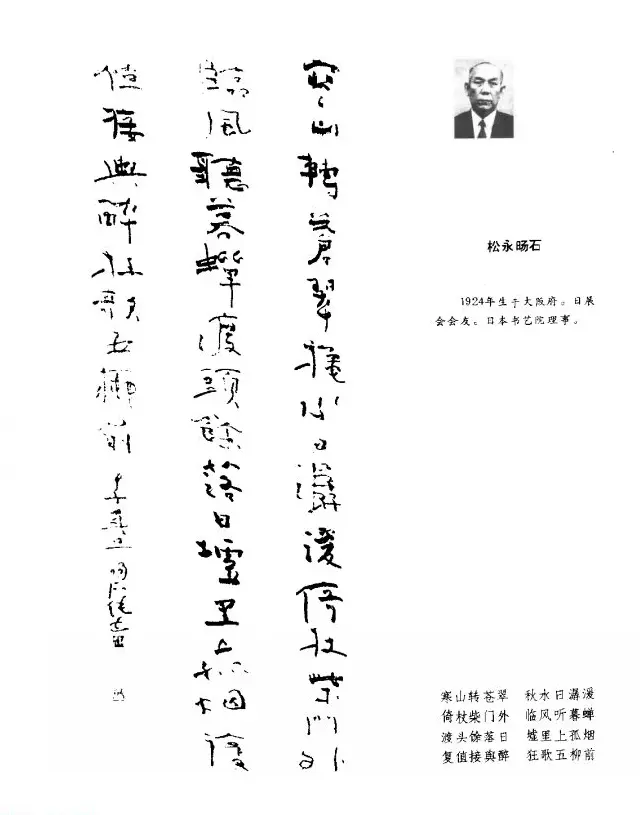 寒山轉蒼翠穐水日潺湲倚杖柴門外
臨風聽暮蟬渡頭餘落日墟里上孤烟復
值接輿醉狂歌五柳前
松永旸石
1924年生于大阪府。日展
会会友。日本书艺院理事。
寒山转苍翠 秋水日潺湲
倚杖柴门外 临风听暮蝉
渡头馀落日 墟里上孤烟
复值接與醉 狂歌五柳前